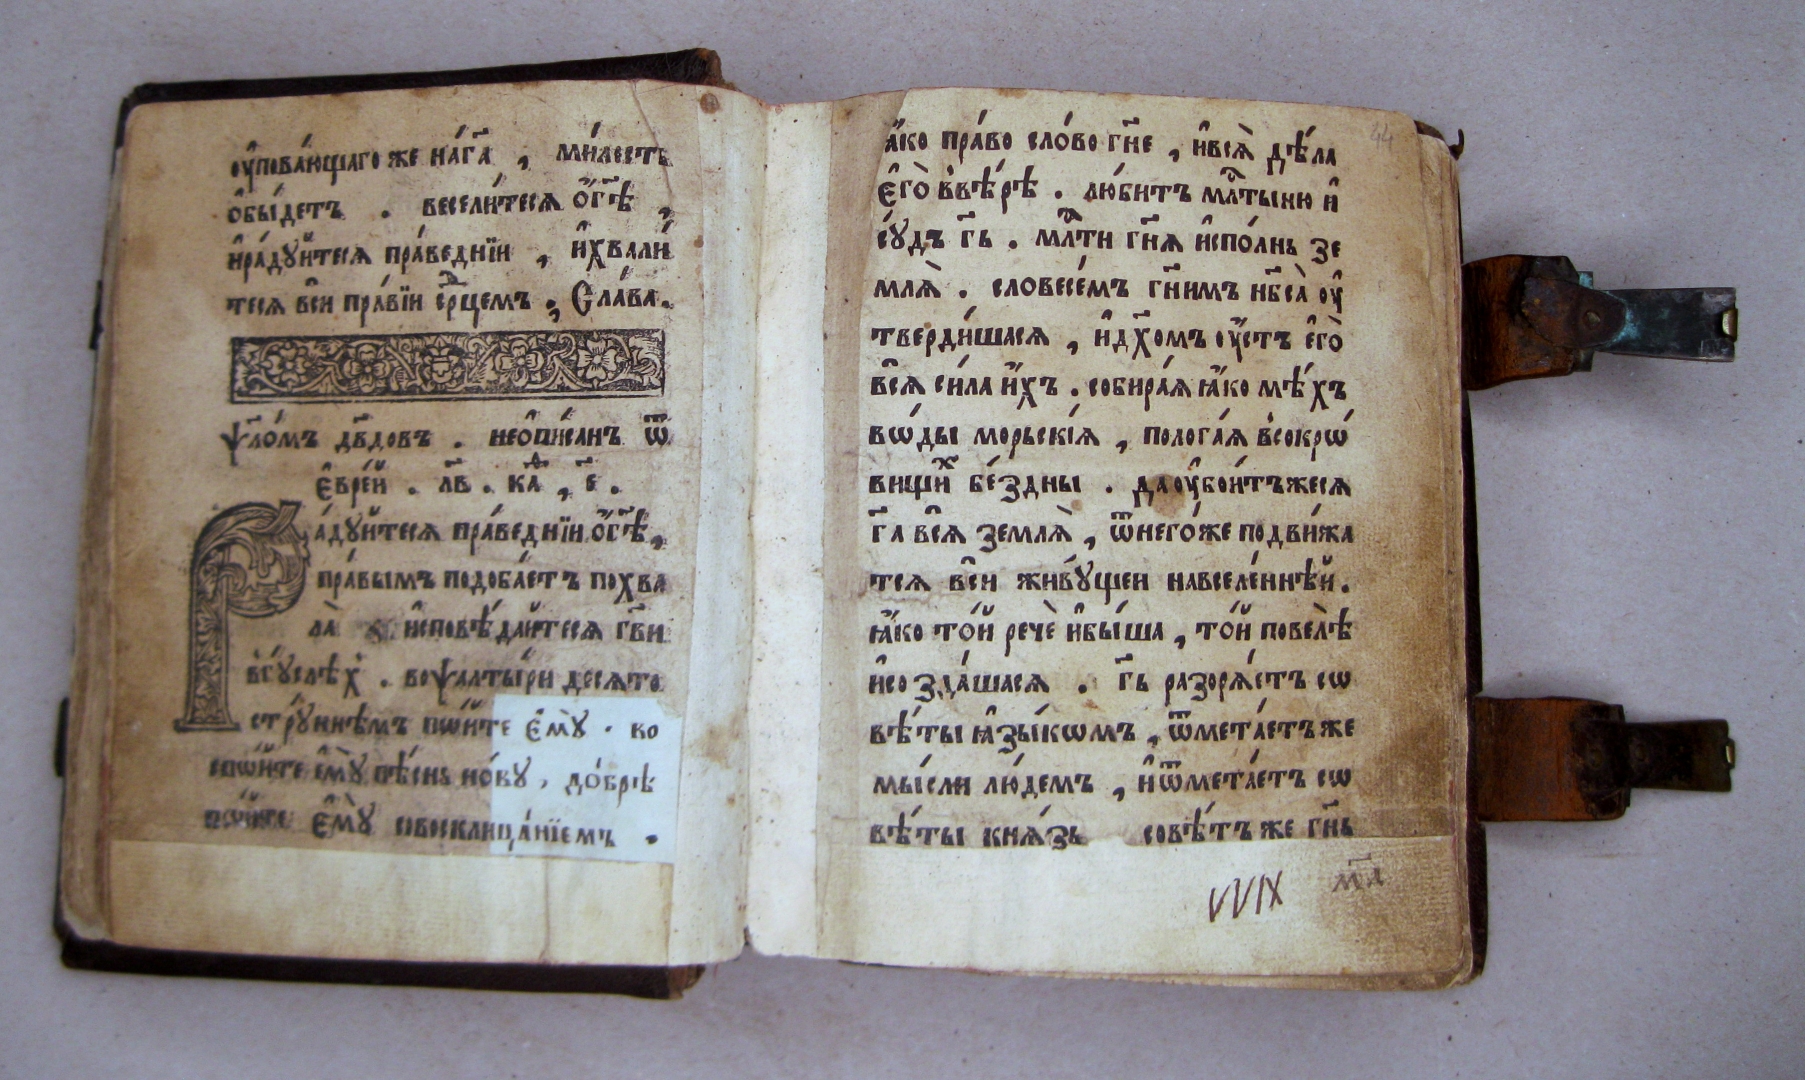 оу҆пова́ющаго же на́гд҇а , ми́лость
ѡ҆бы́детъ . весели́теся ѡ҆ гд҇ѣ ,
и҆ра́дуитеся пра́веднїи , и҆хвали́
теся вси пра́вїи ср҇цемъ , Сла́ва .
ѱл҇о́мъ дв҇довъ . неѡ҆пи́санъ ѿ
є҆вре́й . лв҃ . каѳ , є҃ .
Ра́дуйтеся пра́веднїи ѡ҆ гд҇ѣ ,
пра́вымъ подоба́етъ похва
ла̀ и҆сповѣ́даитеся гд҇ви
в гу́слѣх . воѱалты́ри десѧто
стру́ннѣмъ по́йте є҆мꙋ̀ . во
спо́йте є҆мꙋ̀ пѣ́снь но́вꙋ , до́брѣ
по́йте є҆мꙋ̀ совосклица́нїемъ .
ꙗ҆́ко пра́во сло́во гн҇е , и҆вся̀ дѣ́ла
є҆го̀ в вѣ́рѣ . лю́битъ мл҇тыню и҆
су́дъ гь҇ . мл҇ти гн҇я и҆спо́лнь зе
мля̀ . словесе́мъ гн҇имъ нб҇са̀ оу҆
тверди́шася , и҆дх҇омъ оу҆́стъ є҆го̀
вся си́ла и҆́хъ . собира́я ꙗ҆́ко мѣ́хъ
во́ды морьскі́я , полога́я в сокрѡ́
вищих бе́здны . да оу҆бои́тъжеся
гд҇а вся земля̀ , ѿнего́же подви́жа
тся вси живу́щеи навселе́ннѣй .
ꙗ҆́ко то́й речѐ и҆бы́ша , то́й повелѣ̀
и҆созда́шася . гь҇ разоря́етъ сѡ
вѣ́ты ꙗ҆зы́кѡмъ , ѿмета́етъ же
мы́сли лю́демъ , и҆ѿмета́етъ сѡ
вѣ́ты кня́зь совѣ́тъ же гн҇ь
44
м҃д